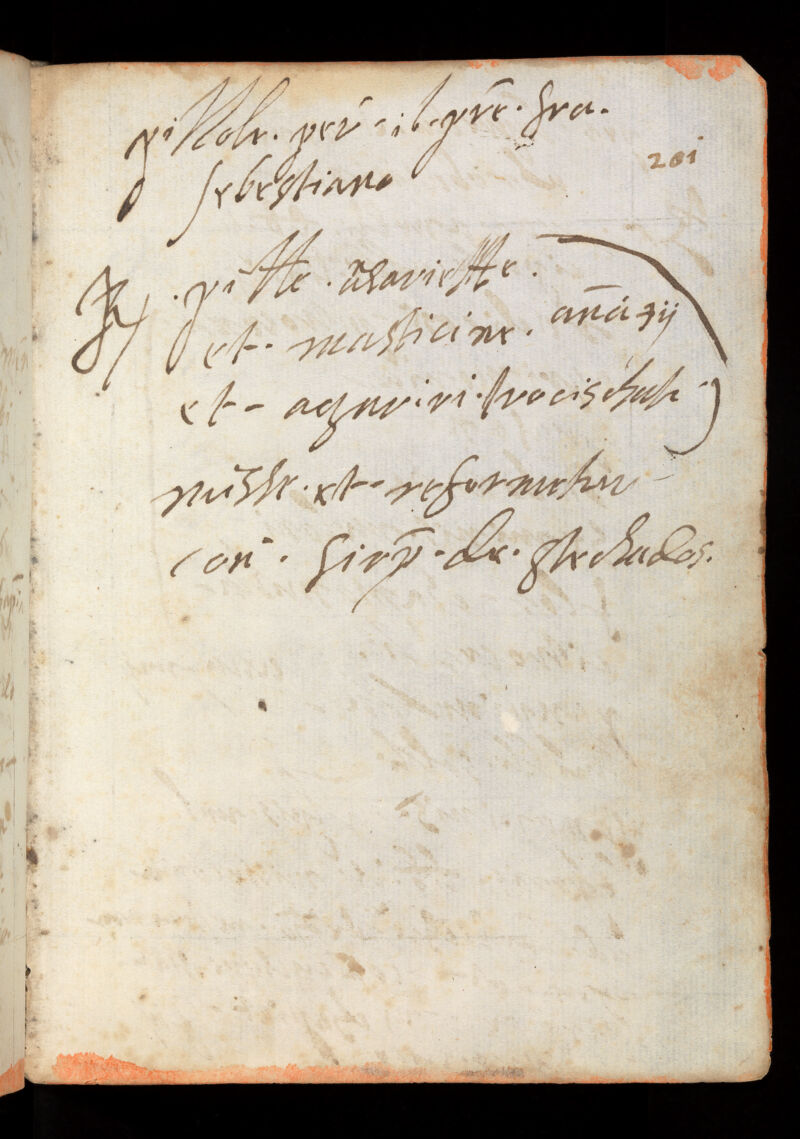 pillole. per. il. pre. fra.
201
Sebestiano
℞. pille. alariesse.
et. masticine. ana ʒij
et - agarici. trocischati
misse. et - reformetur
con. sirop. de. stechados.